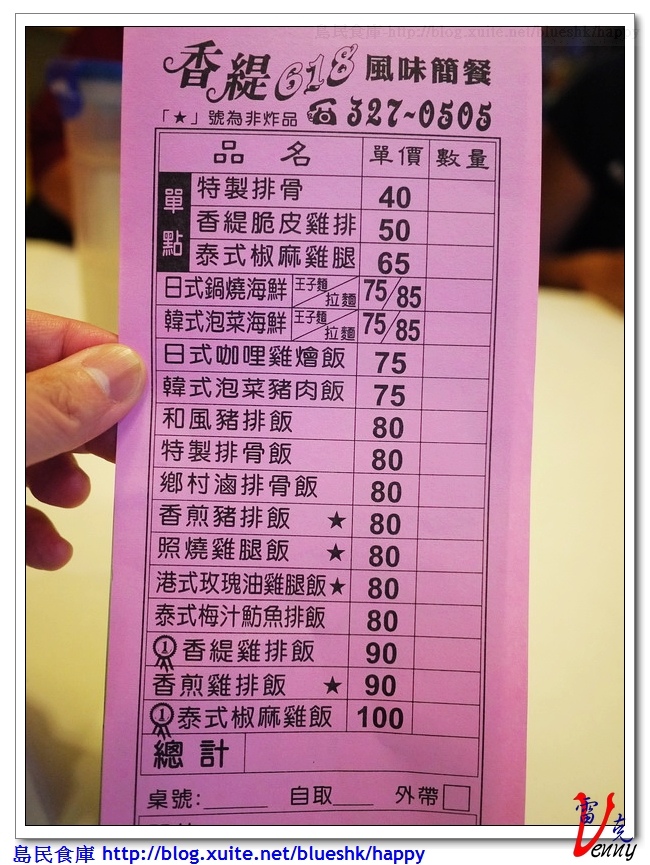 島民食庫 http://blog.xuite.net/blueshk/happy
香緹618 風味簡餐
「★」號為非炸品 ☎ 327~0505
品名 單價 數量
單點
特製排骨 40
香緹脆皮雞排 50
泰式椒麻雞腿 65
日式鍋燒海鮮 王子麵/拉麵 75/85
韓式泡菜海鮮 王子麵/拉麵 75/85
日式咖哩雞燴飯 75
韓式泡菜豬肉飯 75
和風豬排飯 80
特製排骨飯 80
鄉村滷排骨飯 80
香煎豬排飯 ★ 80
照燒雞腿飯 ★ 80
港式玫瑰油雞腿飯★ 80
泰式梅汁魴魚排飯 80
1 香緹雞排飯 90
香煎雞排飯 ★ 90
1 泰式椒麻雞飯 100
總計
桌號:______ 自取____ 外帶□
雷克
Venny
島民食庫 http://blog.xuite.net/blueshk/happy